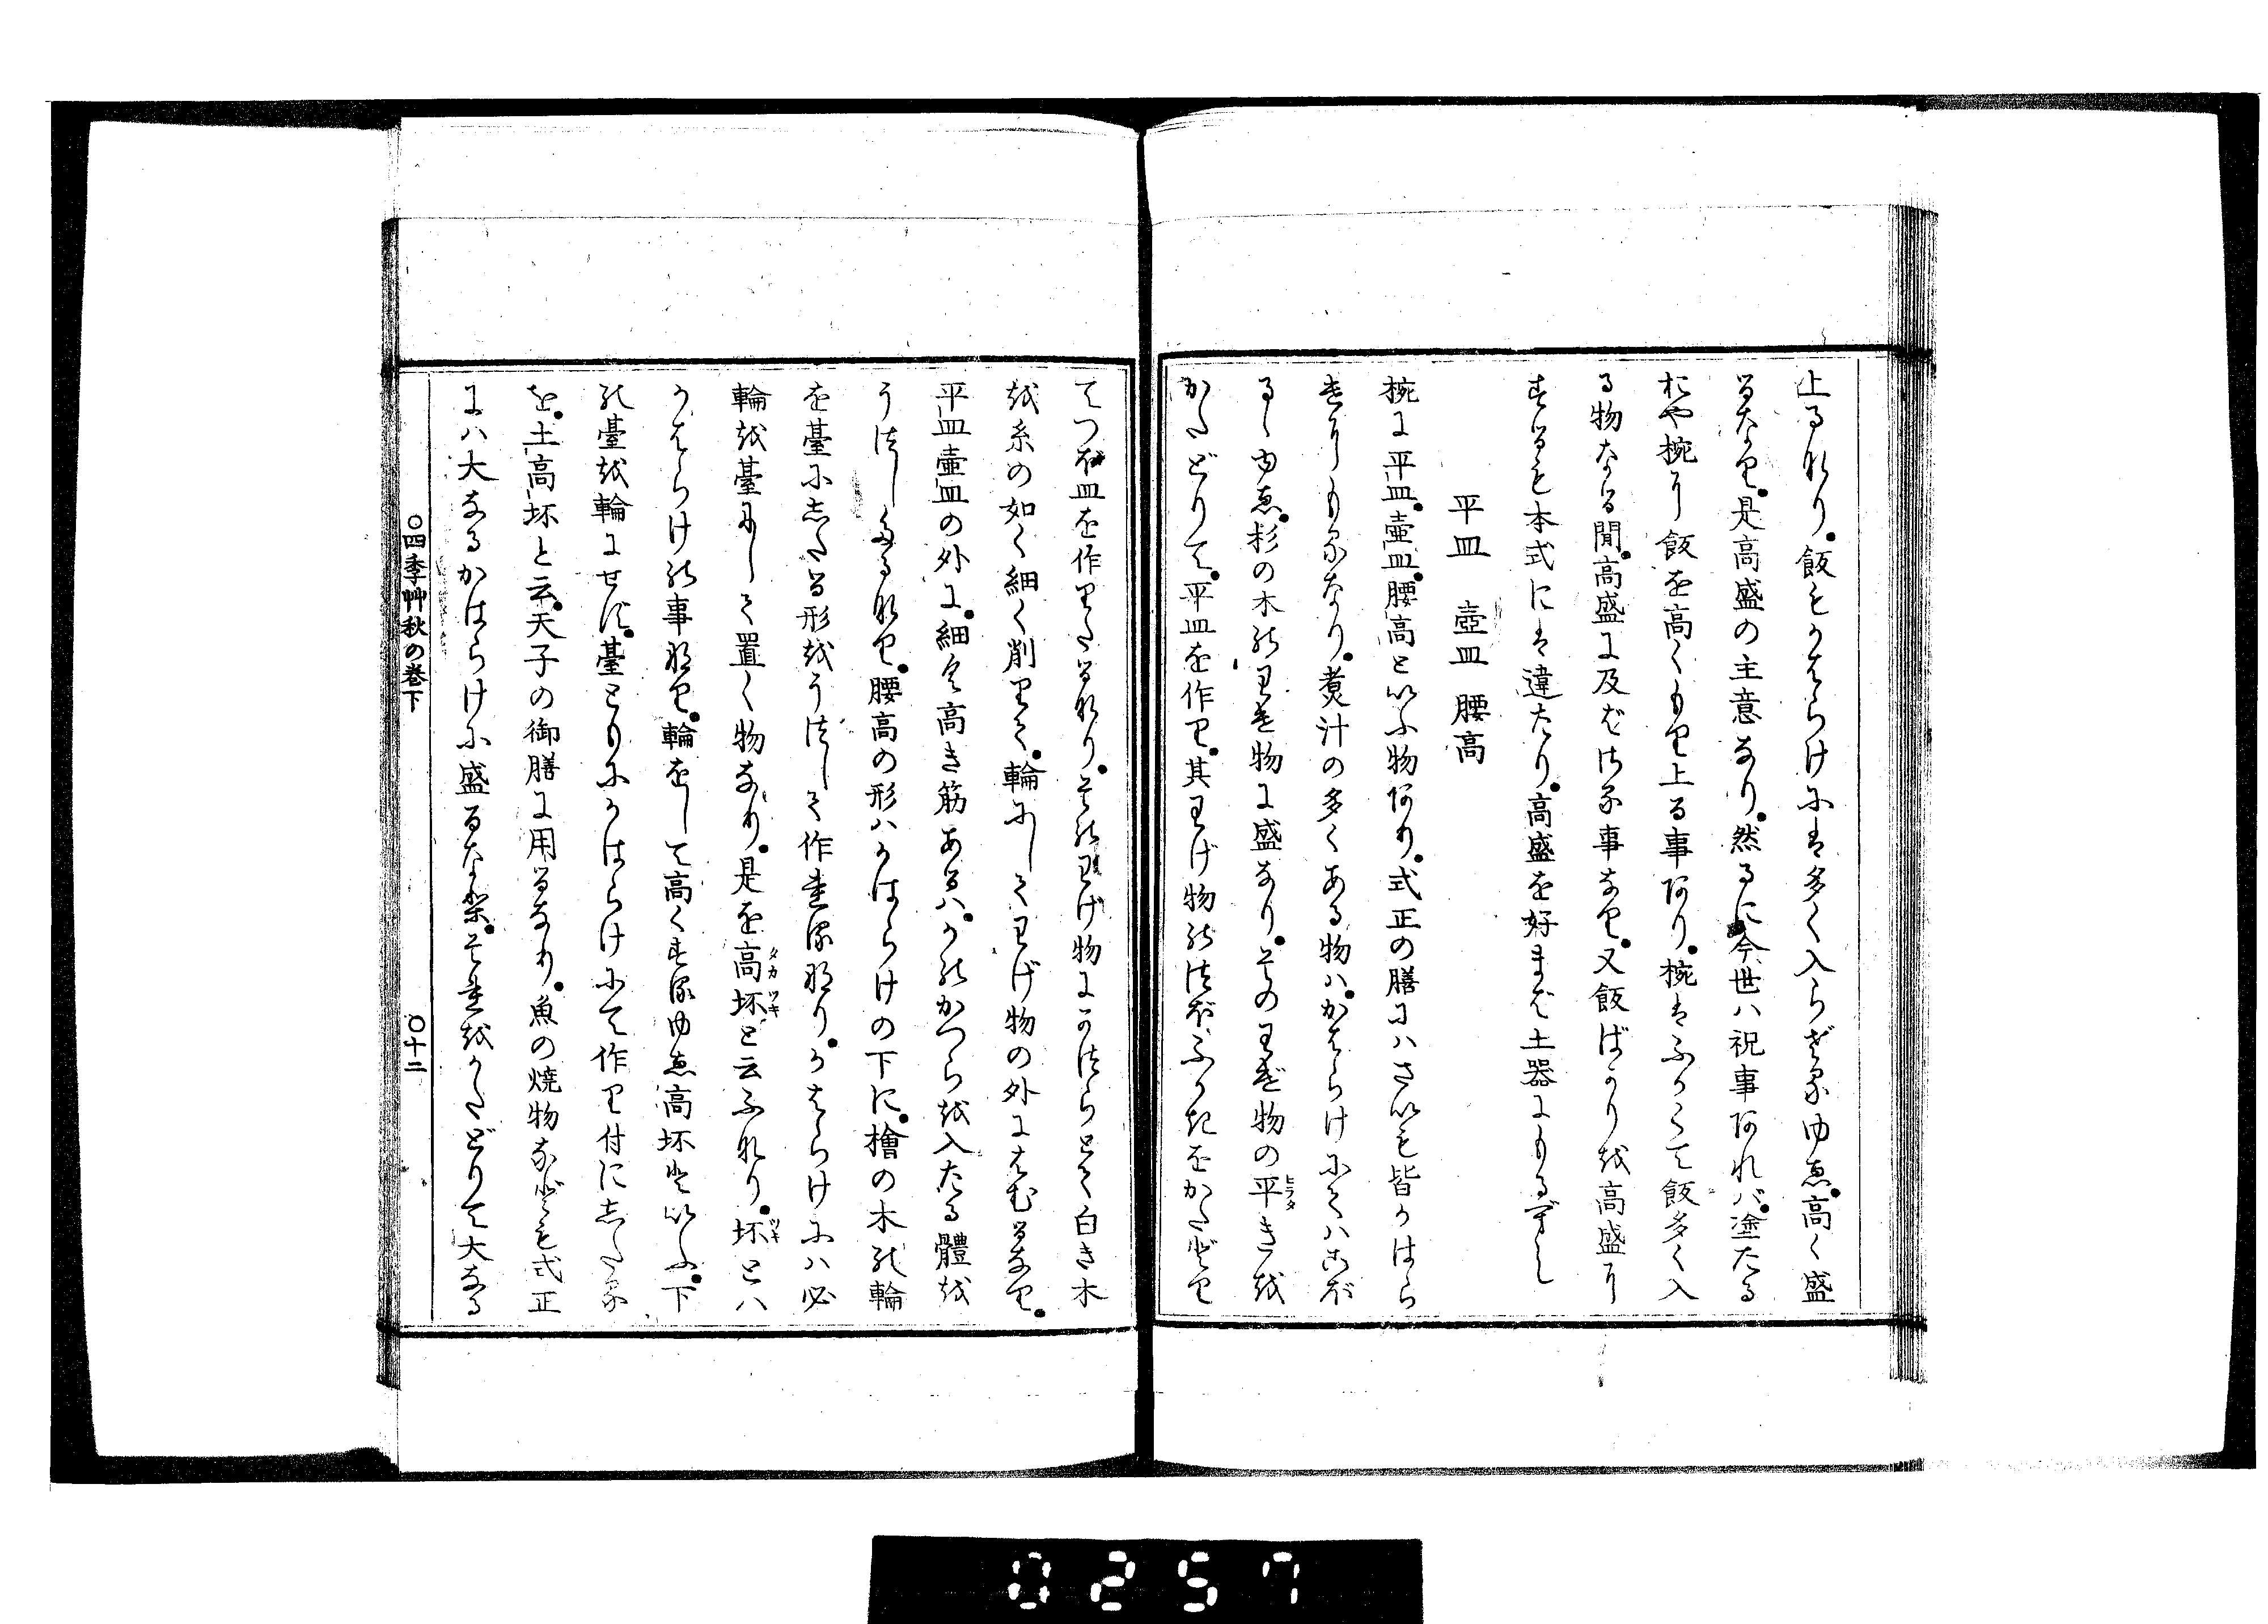 上るなり。飯もかはらけには多く入らざるゆゑ。高く盛
るなり。是高盛の主意なり。然るに今世ハ祝事あれバ。塗たる
おや椀に飯を高くもり上る事あり。椀はふかくて飯多く入
る物なる間。高盛に及ばざる事なり。又飯ばかりを高盛に
するも本式には違たり。高盛を好まば土器にもるべし
平皿 壺皿 腰高
椀に平皿。壺皿。腰高といふ物あり。式正の膳にハさいも皆かはら
けにもるなり。煮汁の多くある物ハ。かはらけにてハこぼ
るゝゆゑ。杉の木のわげ物に盛なり。そのわげ物の平き を
かたどりて。平皿を作り。其わげ物のつぼふかきをかたどり
てつぼ皿を作りたるなり。そのわげ物にかつらとて白き木
を糸の如く細く削りて。輪にしてわげ物の外にはむるなり。
平皿壺皿の外に。細く高き筋あるハ。かのかつらを入たる體を
うつしたるなり。腰高の形ハかはらけの下に。檜の木の輪
を臺にしたる形をうつして作れるなり。かはらけにハ必
輪を臺にして置く物なり。是を高坏と云ふなり。坏とハ
かはらけの事なり。輪をして高くするゆゑ高坏といふ。下
の臺を輪にせず。臺ともにかはらけにて作り付にしたる
を。土高坏と云。天子の御膳に用るなり。魚の焼物なども式正
にハ大なるかはらけに盛るなり。それをかたどりて大なる
タカツキ
ツキ
ヒラタ
○四季艸秋の巻下
○十二
0257